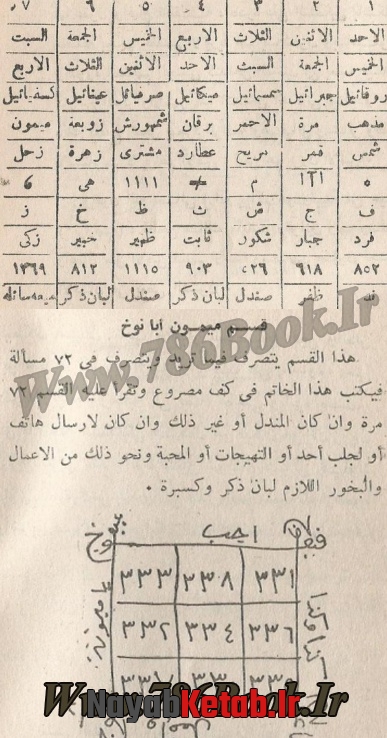 ١ ٢ ٣ ٤ ٥ ٦ ٧
الاحد الاثنين الثلاث الاربع الخميس الجمعة السبت
الخميس الجمعة السبت الاحد الاثنين الثلاث الاربع
روقائيل جبرائيل سمسمائيل ميكائيل صرفيائيل عينائيل كسفيائيل
مذهب مرة الاحمر برقان شمهورش زوبعة ميمون
شمس قمر مريخ عطارد مشترى زهرة زحل
م ١١١١ هى 6
ف ج ش ث ظ خ ز
فرد جبار شكور ثابت ظهير خبير زكى
٨٥٢ ٦١٨ ٩٠٣ ١١١٥ ٨١٢ ١٣٦٩
ند ظفر صندل لبان ذكر صندل لبان ذكر ميعه سائله
قسم ميمون أبا نوخ
هذا القسم يتصرف فيما تريد ويتصرف فى ٧٢ مسألة
فيكتب هذا الخاتم فى كف مصروع وتقرأ عليه القسم ٧٢
مرة وان كان المندل أو غير ذلك وان كان لارسال هاتف
أو لجلب أحد أو التهيجات أو المحبة ونحو ذلك من الاعمال
والبخور اللازم لبان ذكر وكسبرة .
اجب
٣٣١ ٣٣٨ ٣٣٣
٣٣٦ ٣٣٤ ٣٣٢
www.786Book.Ir
Www.786Book.Ir
NayabKetab.Ir